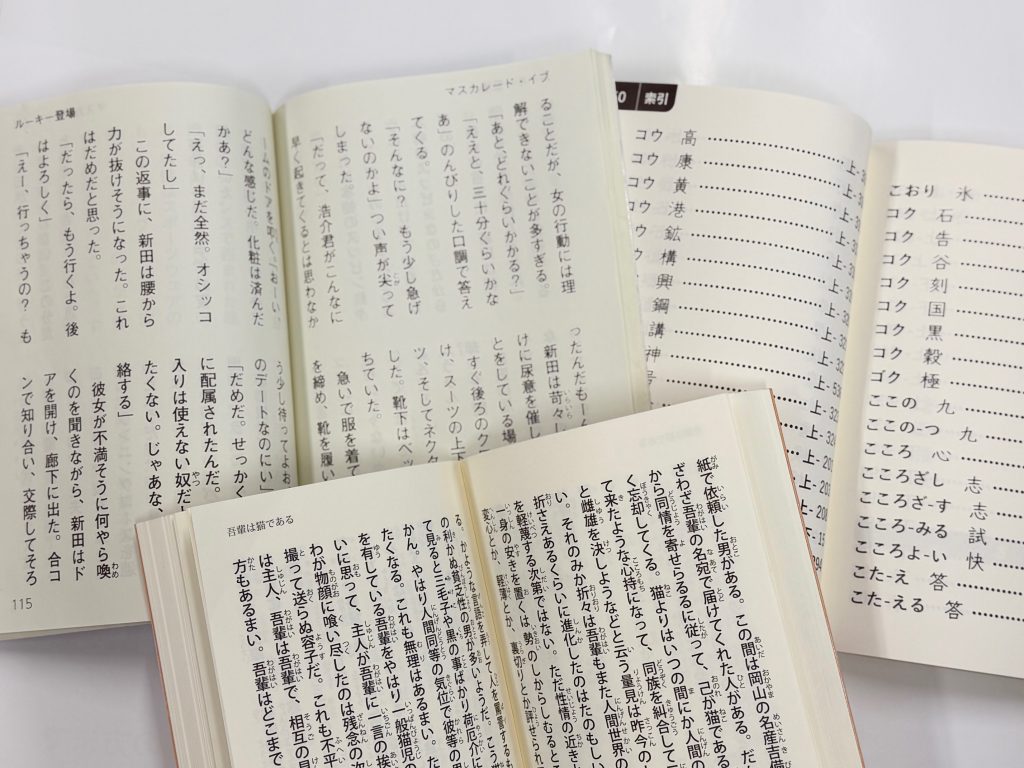 マスカレード・イブ
ることだが、女の行動には理
解できないことが多すぎる。
「あと、どれぐらいかかる?」
「ええと、三十分ぐらいかな
あ」のんびりした口調で答え
てくる。
「そんなに? もう少し急げ
ないのかよ」つい声が尖って
しまった。
「だって、浩介君がこんなに
早く起きてくるとは思わなか
ったんだもーん
新田は苛々
けに尿意を催し
とをしている場
すぐ後ろのク
け、スーツの上下
ツ、そしてネクタ
した。靴下はベッ
ちていた。
急いで服を着て
を締め、靴を履い
ルーキー登場
ームのドアを叩く。「おーい、
どんな感じだ。化粧は済んだ
かあ?」
「えっ、まだ全然。オシッコ
してたし」
この返事に、新田は腰から
力が抜けそうになった。これ
はだめだと思った。
「だったら、もう行くよ。後
はよろしく」
「えー、行っちゃうの? も
う少し待ってよお
のデートなのにい」
「だめだ。せっかく
に配属されたんだ。
入りは使えない奴だ
たくない。じゃあな、
絡する」
彼女が不満そうに何やら喚
くのを聞きながら、新田はド
アを開け、廊下に出た。合コ
ンで知り合い、交際してそろ
115
索引
コウ 高
コウ 康
コウ 黄
コウ 港
鉱
構
興
鋼
講
神
こおり 氷
コク 石
コク 告
コク 谷
コク 刻
コク 国
コク 黒
コク 穀
ゴク 極
ここの 九
ここの-つ 九
こころ 心
こころざし 志
こころざ-す 志
こころ-みる 試
こころよ-い 快
こた-え 答
こた-える 答
紙で依頼した男がある。この間は岡山の名産吉備
ざわざ吾輩の名宛で届けてくれた人がある。だん
から同情を寄せらるるに従って、己が猫である
く忘却してくる。猫よりはいつの間にか人間の
て来たような心持になって、同族を糾合して
と雌雄を決しようなどと云う量見は昨今の
い。それのみか折々は吾輩もまた人間世界の
折さえあるくらいに進化したのはたのもしい
を軽蔑する次第ではない。ただ性情の近き
一身の安きを置くは、勢のしからしむるところ
変心とか、軽薄とか、裏切りとか評せられ
吾輩は猫である
る。かような言語を弄して人を罵詈するも
の利かぬ貧乏性の男が多いようだ。こう
て見ると三毛子や黒の事ばかり荷厄介に
かん。やはり人間同等の気位で彼等の思
たくなる。これも無理はあるまい。た
を有している吾輩をやはり一般猫児の
いに思って、主人が吾輩に一言の挨
わが物顔に喰い尽したのは残念の次
撮って送らぬ容子だ。これも不平
は主人、吾輩は吾輩で、相互の見
方もあるまい。吾輩はどこまで